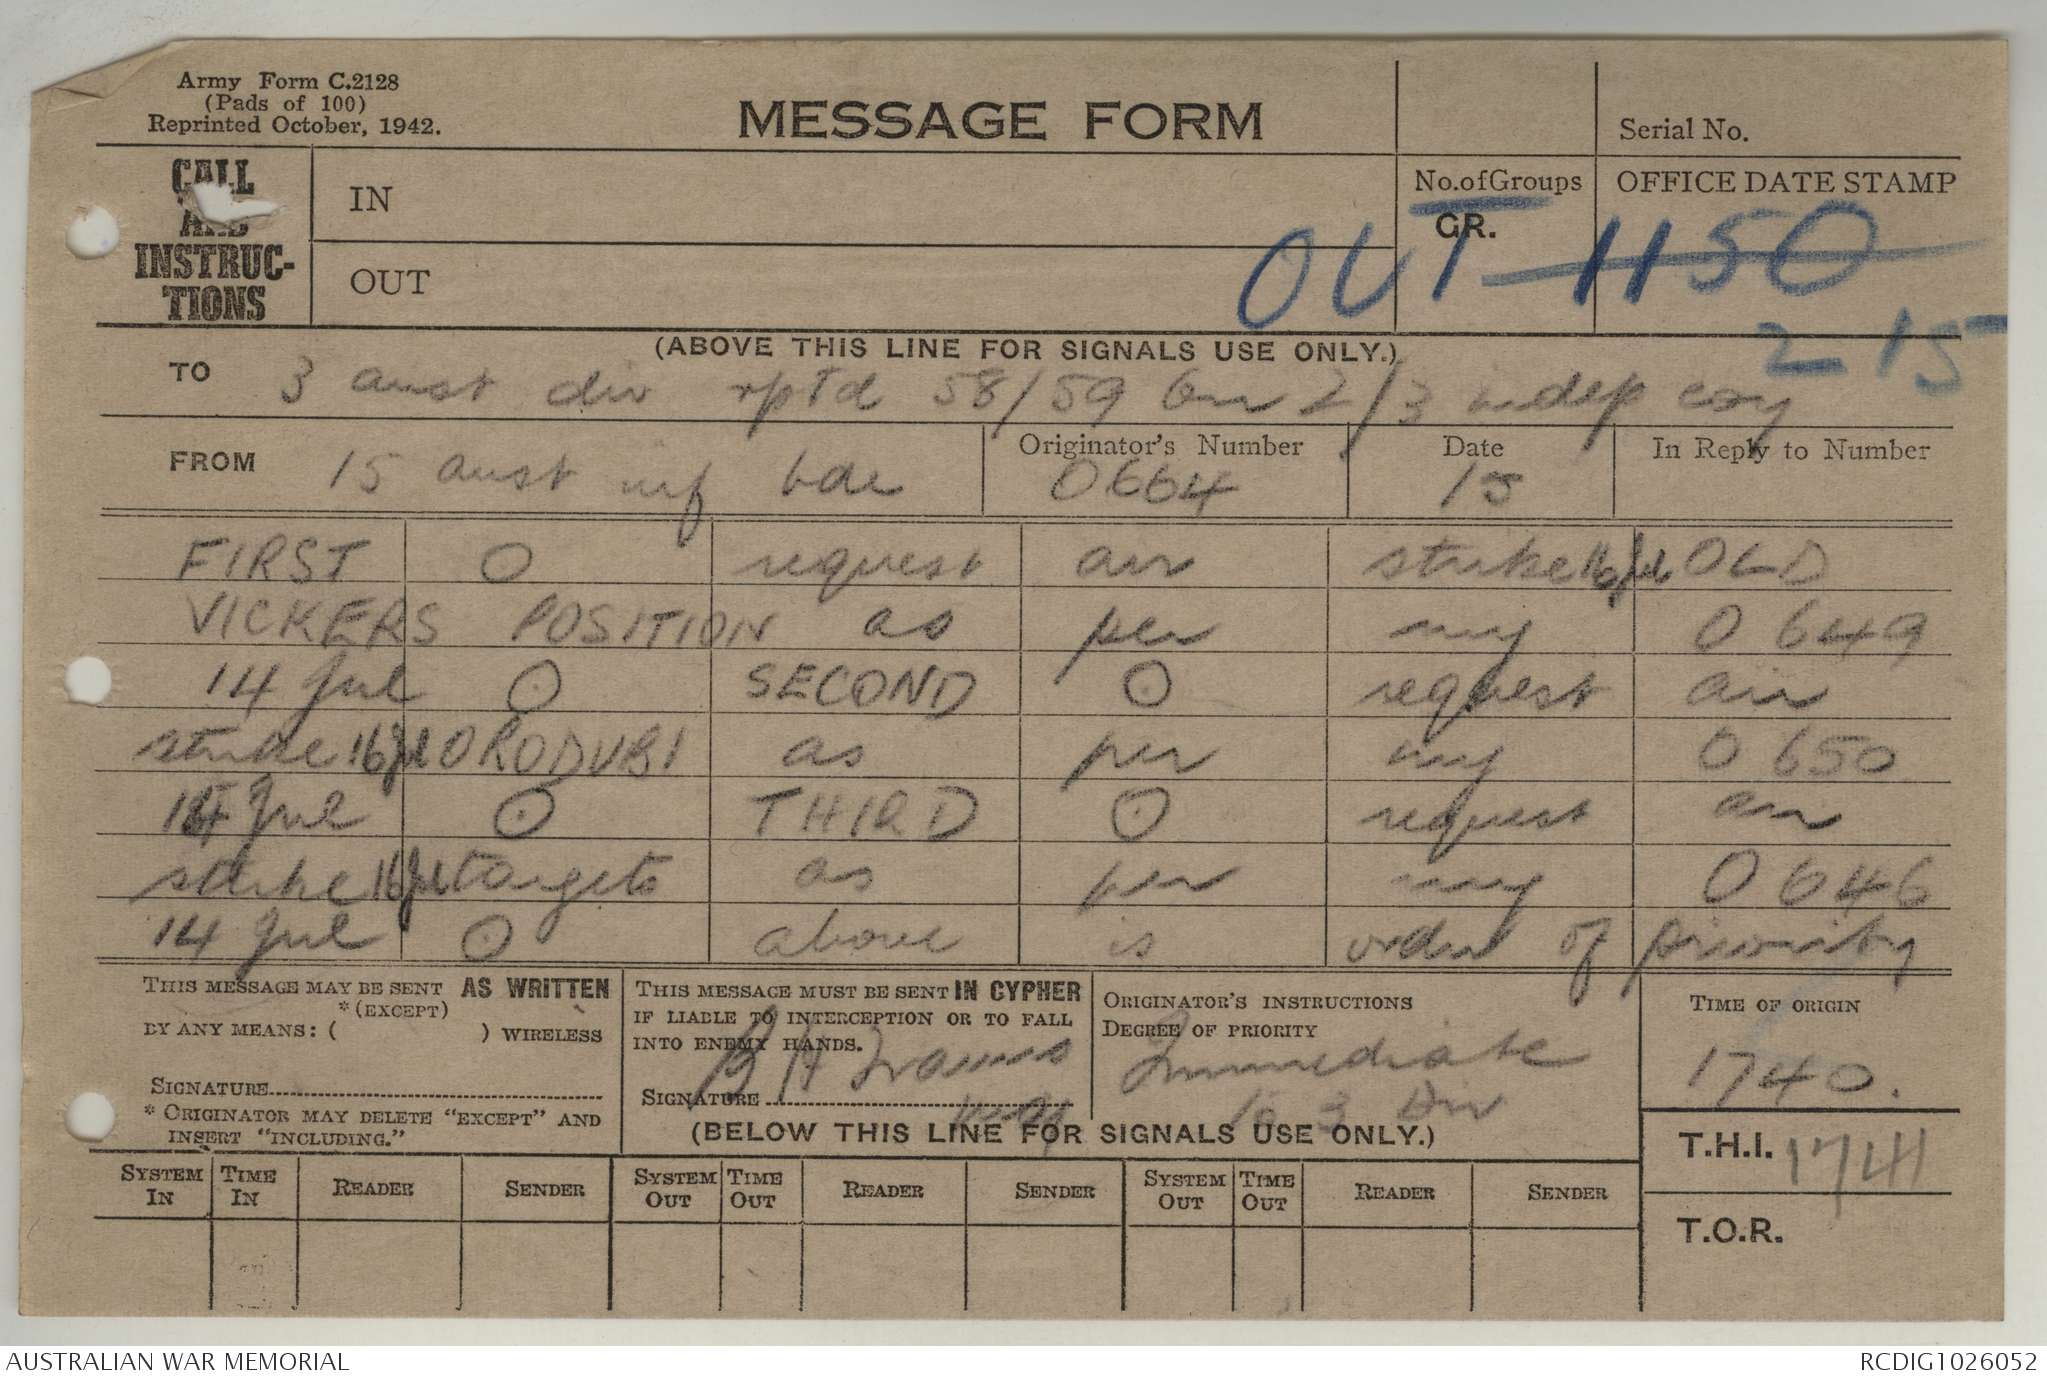 Army Form C.2128
(Pads of 100)
Reprinted October, 1942.
MESSAGE FORM
Serial No.
CALL
AND
INSTRUC-
TIONS
IN
OUT
No. of Groups
GR.
OFFICE DATE STAMP
OUT 1150
215
(ABOVE THIS LINE FOR SIGNALS USE ONLY.)
TO 3 aust div rptd 58/59 bn 2/3 indep coy
FROM 15 aust inf bde
Originator's Number 0664
Date 15
In Reply to Number
FIRST O request air strike 16 Jul OLD
VICKERS POSITION as per my 0649
14 Jul O SECOND O request air
strike 16 Jul ORODUBI as per my 0650
14 Jul O THIRD O request air
strike 16 Jul targets as per my 0646
14 Jul O above is order of priority
THIS MESSAGE MAY BE SENT AS WRITTEN
*(EXCEPT)
BY ANY MEANS: ( ) WIRELESS
SIGNATURE
* ORIGINATOR MAY DELETE "EXCEPT" AND
INSERT "INCLUDING."
THIS MESSAGE MUST BE SENT IN CYPHER
IF LIABLE TO INTERCEPTION OR TO FALL
INTO ENEMY HANDS.
SIGNATURE
ORIGINATOR'S INSTRUCTIONS
DEGREE OF PRIORITY
Immediate
to 3 Div
TIME OF ORIGIN
1740.
(BELOW THIS LINE FOR SIGNALS USE ONLY.)
T.H.I. 1741
T.O.R.
SYSTEM IN TIME IN READER SENDER SYSTEM OUT TIME OUT READER SENDER SYSTEM OUT TIME OUT READER SENDER
AUSTRALIAN WAR MEMORIAL
RCDIG1026052